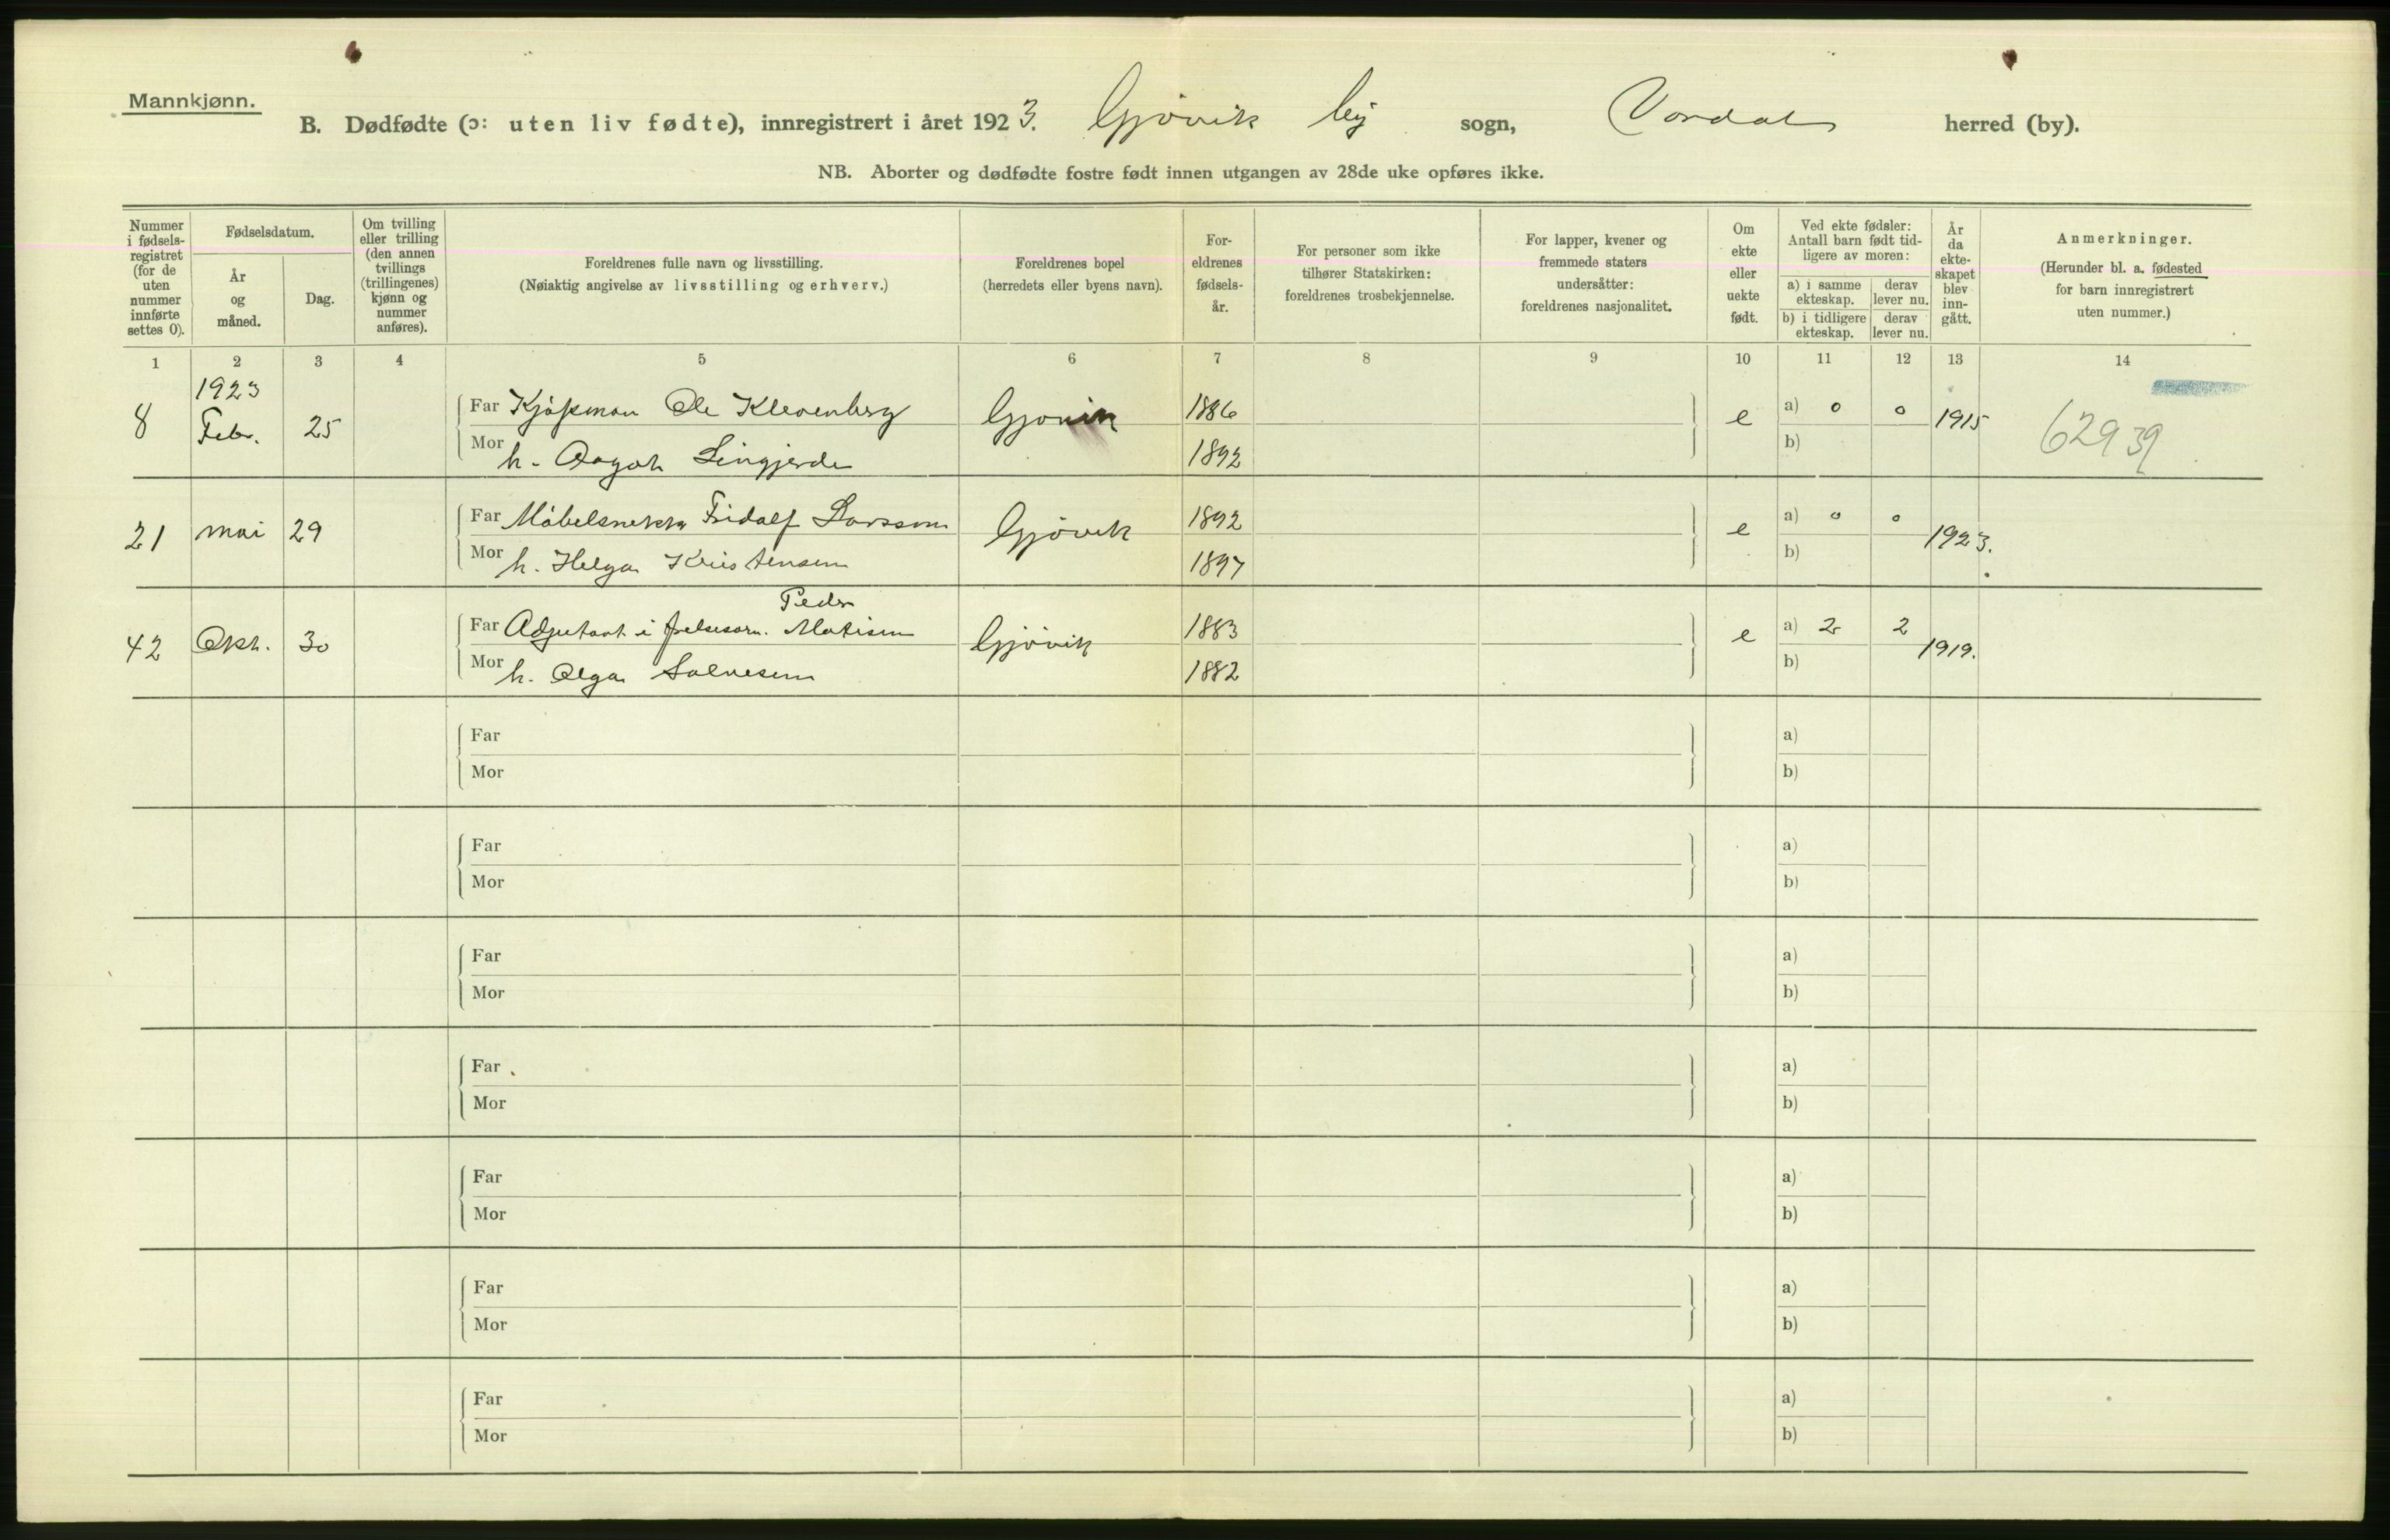 Mannkjønn.
B. Dødfødte (ɔ: uten liv fødte), innregistrert i året 1923. Gjøvik by sogn, Vardal herred (by).
NB. Aborter og dødfødte fostre født innen utgangen av 28de uke opføres ikke.
Nummer i fødsels-registret (for de uten nummer innførte settes 0).
Fødselsdatum.
År og måned.
Dag.
Om tvilling eller trilling (den annen tvillings (trillingenes) kjønn og nummer anføres).
Foreldrenes fulle navn og livsstilling.
(Nøiaktig angivelse av livsstilling og erhverv.)
Foreldrenes bopel
(herredets eller byens navn).
For-eldrenes fødsels-år.
For personer som ikke tilhører Statskirken: foreldrenes trosbekjennelse.
For lapper, kvener og fremmede staters undersåtter: foreldrenes nasjonalitet.
Om ekte eller uekte født.
Ved ekte fødsler: Antall barn født tid-ligere av moren:
a) i samme ekteskap.
derav lever nu.
b) i tidligere ekteskap.
derav lever nu.
År da ekte-skapet blev inn-gått.
Anmerkninger.
(Herunder bl. a. fødested for barn innregistrert uten nummer.)
1 2 3 4 5 6 7 8 9 10 11 12 13 14
1923
8 Febr. 25 Far Kjøpman Ole Klevenberg Gjøvik 1886 e a) 0 0 1915 62939
Mor h. Aagot Lingjerde 1892 b)
21 mai 29 Far Møbelsnekker Fridalf Larsson Gjøvik 1892 e a) 0 0 1923.
Mor h. Helga Kristensen 1897 b)
Peder
42 Okt. 30 Far Adjutant i frelsesarm. Matisen Gjøvik 1883 e a) 2 2 1919.
Mor h. Olga Salvesen 1882 b)
Far a)
Mor b)
Far a)
Mor b)
Far a)
Mor b)
Far a)
Mor b)
Far a)
Mor b)
Far a)
Mor b)
Far a)
Mor b)